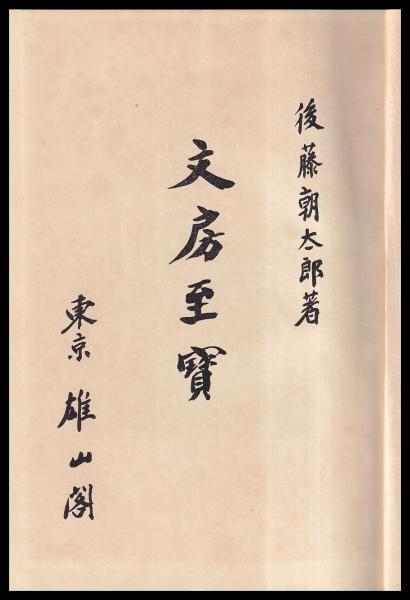 後藤朝太郎著
文房至寶
東京 雄山閣